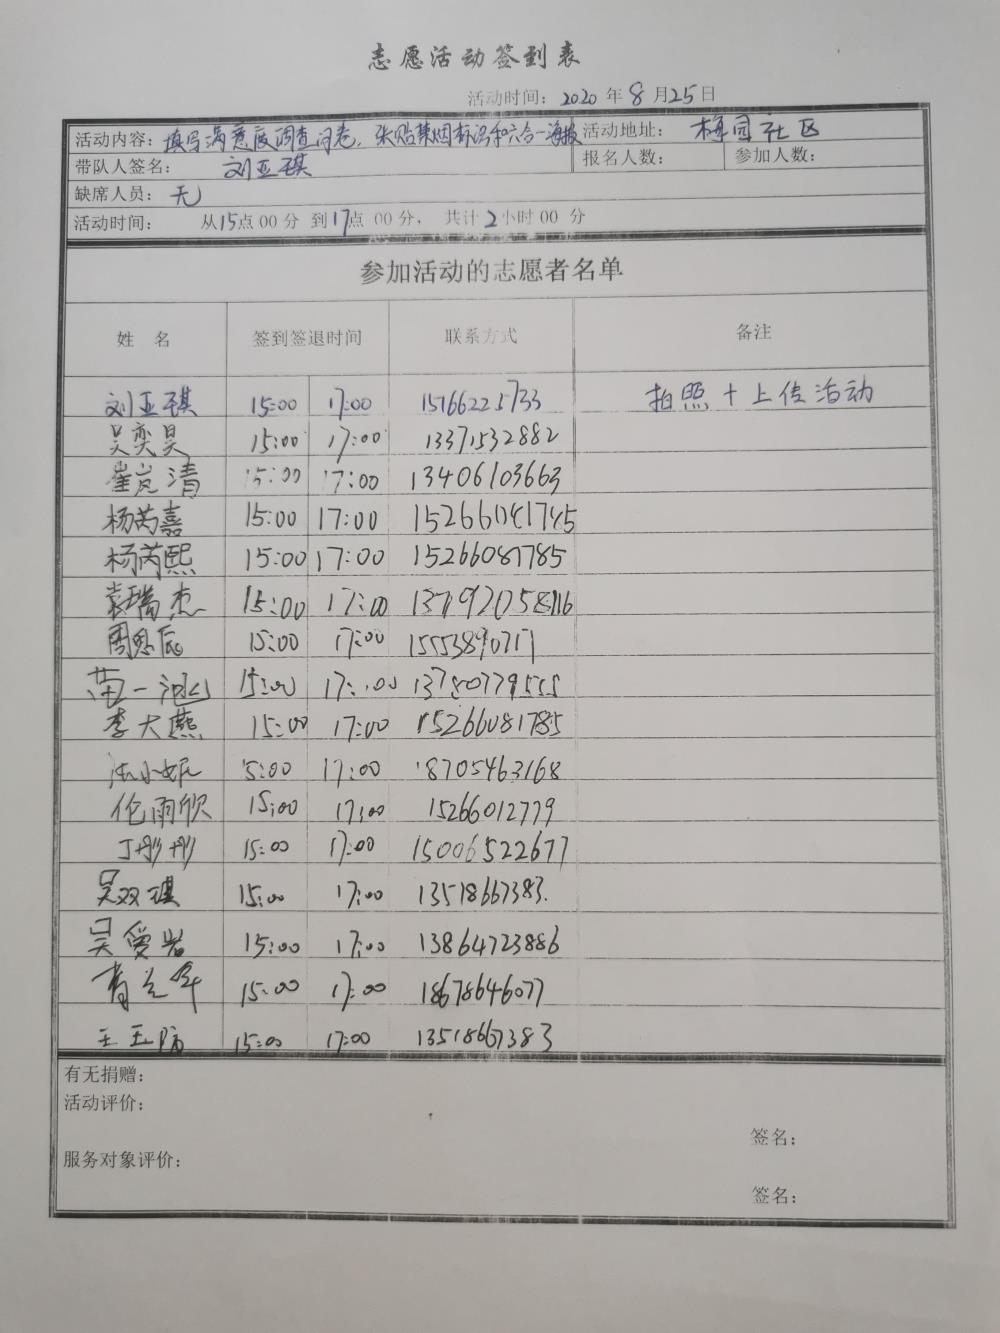 志愿活动签到表
活动时间：2020 年 8 月 25 日
活动内容：填写满意度调查问卷，张贴禁烟标识和六合一海报 活动地址：梅园社区
带队人签名：刘亚琪 报名人数： 参加人数：
缺席人员：无
活动时间： 从15点 00 分 到17点 00 分， 共计 2小时 00 分
参加活动的志愿者名单
姓 名 签到签退时间 联系方式 备注
刘亚琪 15:00 17:00 15166225733 拍照+上传活动
吴奕昊 15:00 17:00 13371532882
崔岚清 15:00 17:00 13406103663
杨芮嘉 15:00 17:00 15266041745
杨芮熙 15:00 17:00 15266081785
袁瑞杰 15:00 17:00
周思辰 15:00 17:00
苗一 15:00 17:00 13780779555
李大燕 15:00 17:00 15266081785
5:00 17:00 18705463168
伦雨欣 15:00 17:00 15266012779
丁彤彤 15:00 17:00 15006522677
吴双琪 15:00 17:00 13518667383.
吴爱岩 15:00 17:00 13864723886
15:00 17:00 18678646077
王玉 15:00 17:00 13518667383
有无捐赠：
活动评价：
签名：
服务对象评价：
签名：